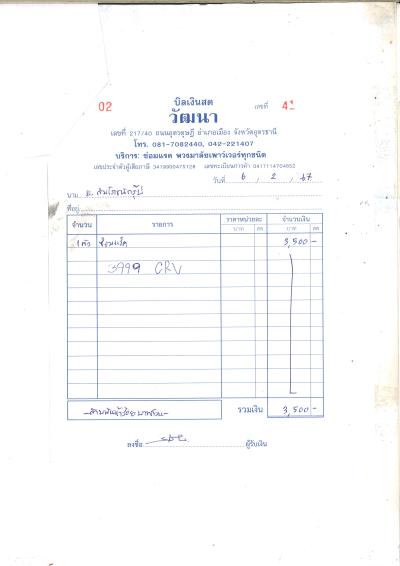 02
บิลเงินสด
เลขที่ 4
วัฒนา
เลขที่ 217/40 ถนนอุดรดุษฎี อำเภอเมือง จังหวัดอุดรธานี
โทร. 081-7082440, 042-221407
บริการ: ซ่อมแรค พวงมาลัยเพาเวอร์ทุกชนิด
เลขประจำตัวผู้เสียภาษี 3419900475128 เลขทะเบียนการค้า 0417114704652
วันที่ 6 / 2 / 67
นาม
ที่อยู่
จำนวน รายการ ราคาหน่วยละ จำนวนเงิน
บาท สต บาท สต
1 ตัว ซ่อมแร็ค 3,500 -
3999 CRV
-สามพันห้าร้อยบาทถ้วน- รวมเงิน 3,500 -
ลงชื่อ ผู้รับเงิน